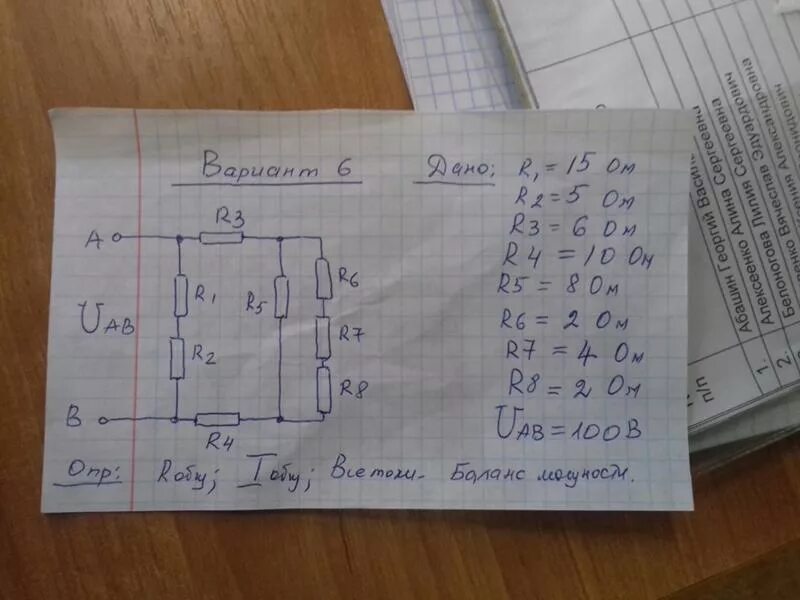 Вариант 6
Дано:
R1 = 15 Ом
R2 = 5 Ом
R3 = 6 Ом
R4 = 10 Ом
R5 = 8 Ом
R6 = 2 Ом
R7 = 4 Ом
R8 = 2 Ом
UAB = 100 В
R3
A
R1
R5
R6
UAB
R2
R7
R8
B
R4
Опр: Rобщ; Iобщ; Все токи - Баланс мощности.
Абашин Георгий
Алексеенко Алина Сергеевна
Белоногова Лилия Эдуардович
Вячеслав
Александровна
п/п
1.
2.